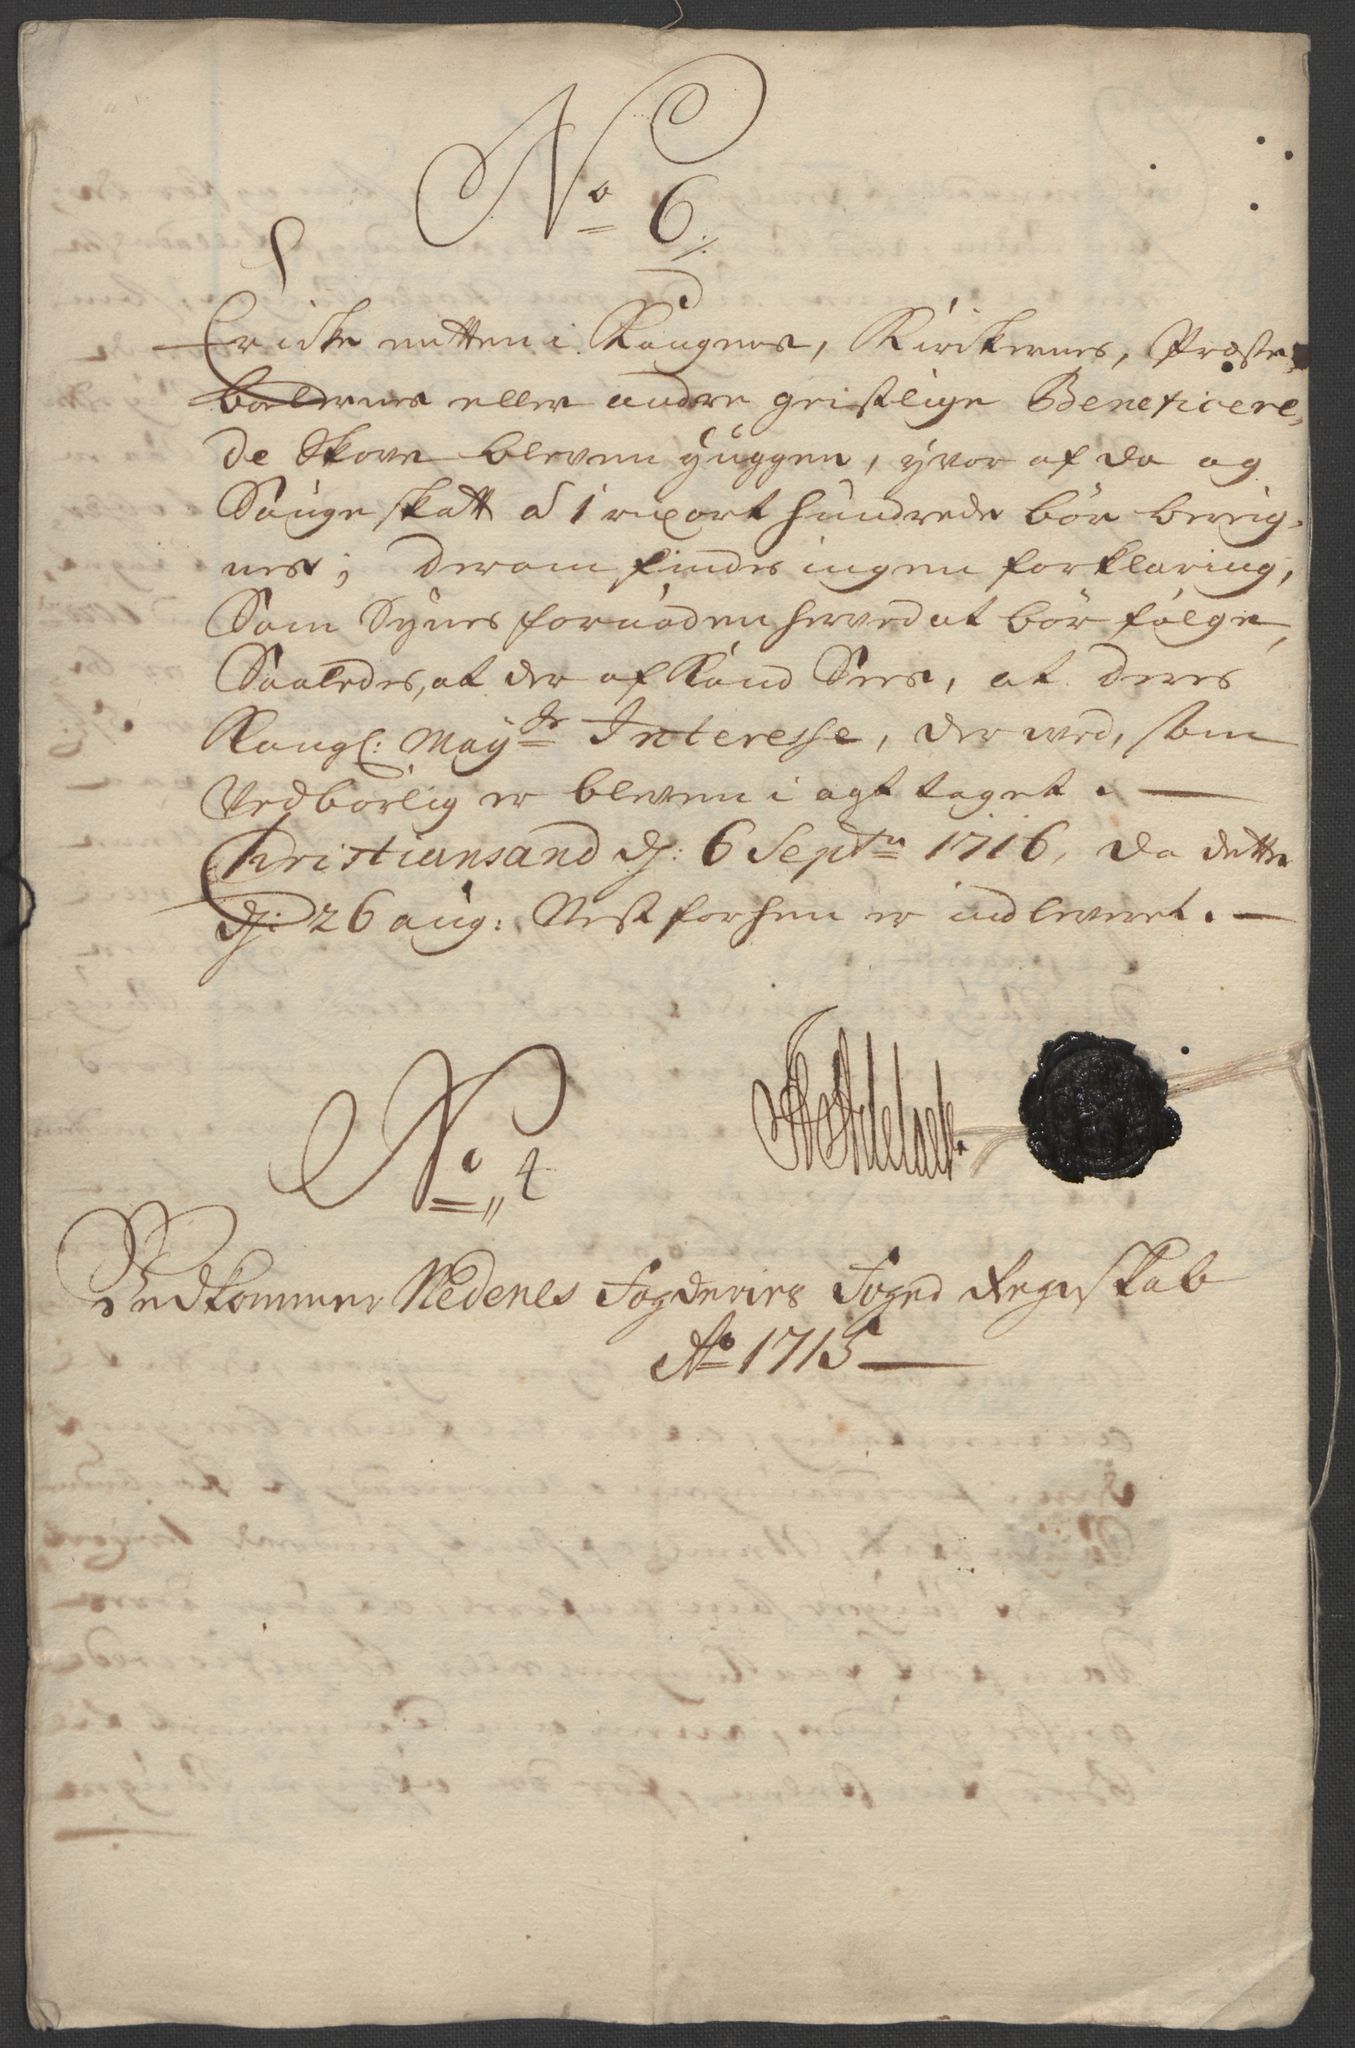 No 6
Er icke nætten i Kongens, Kirckernes, Præste,
boelernes eller andre geistlige Beneficere,
de Skove bleven huggen, hvor af da og
Sauge skatt a 1 rixort hundrede bör bereig,
nes; derom findes ingen forklaring,
Som Synes fornöden herved at bör fölge,
Saaledes, at der af Kand Sees, at deres
Kongl: Mayts Interesse, der ved, som
Vedbörlig er bleven i agt taget. —
Christiansand d: 6 Septr 1716, da dette
d: 26 aug: Nest forhen er indleveret. —
No 4
Vedkommer Nedenes Fogderies Foged Regnskab
Ao 1715 —